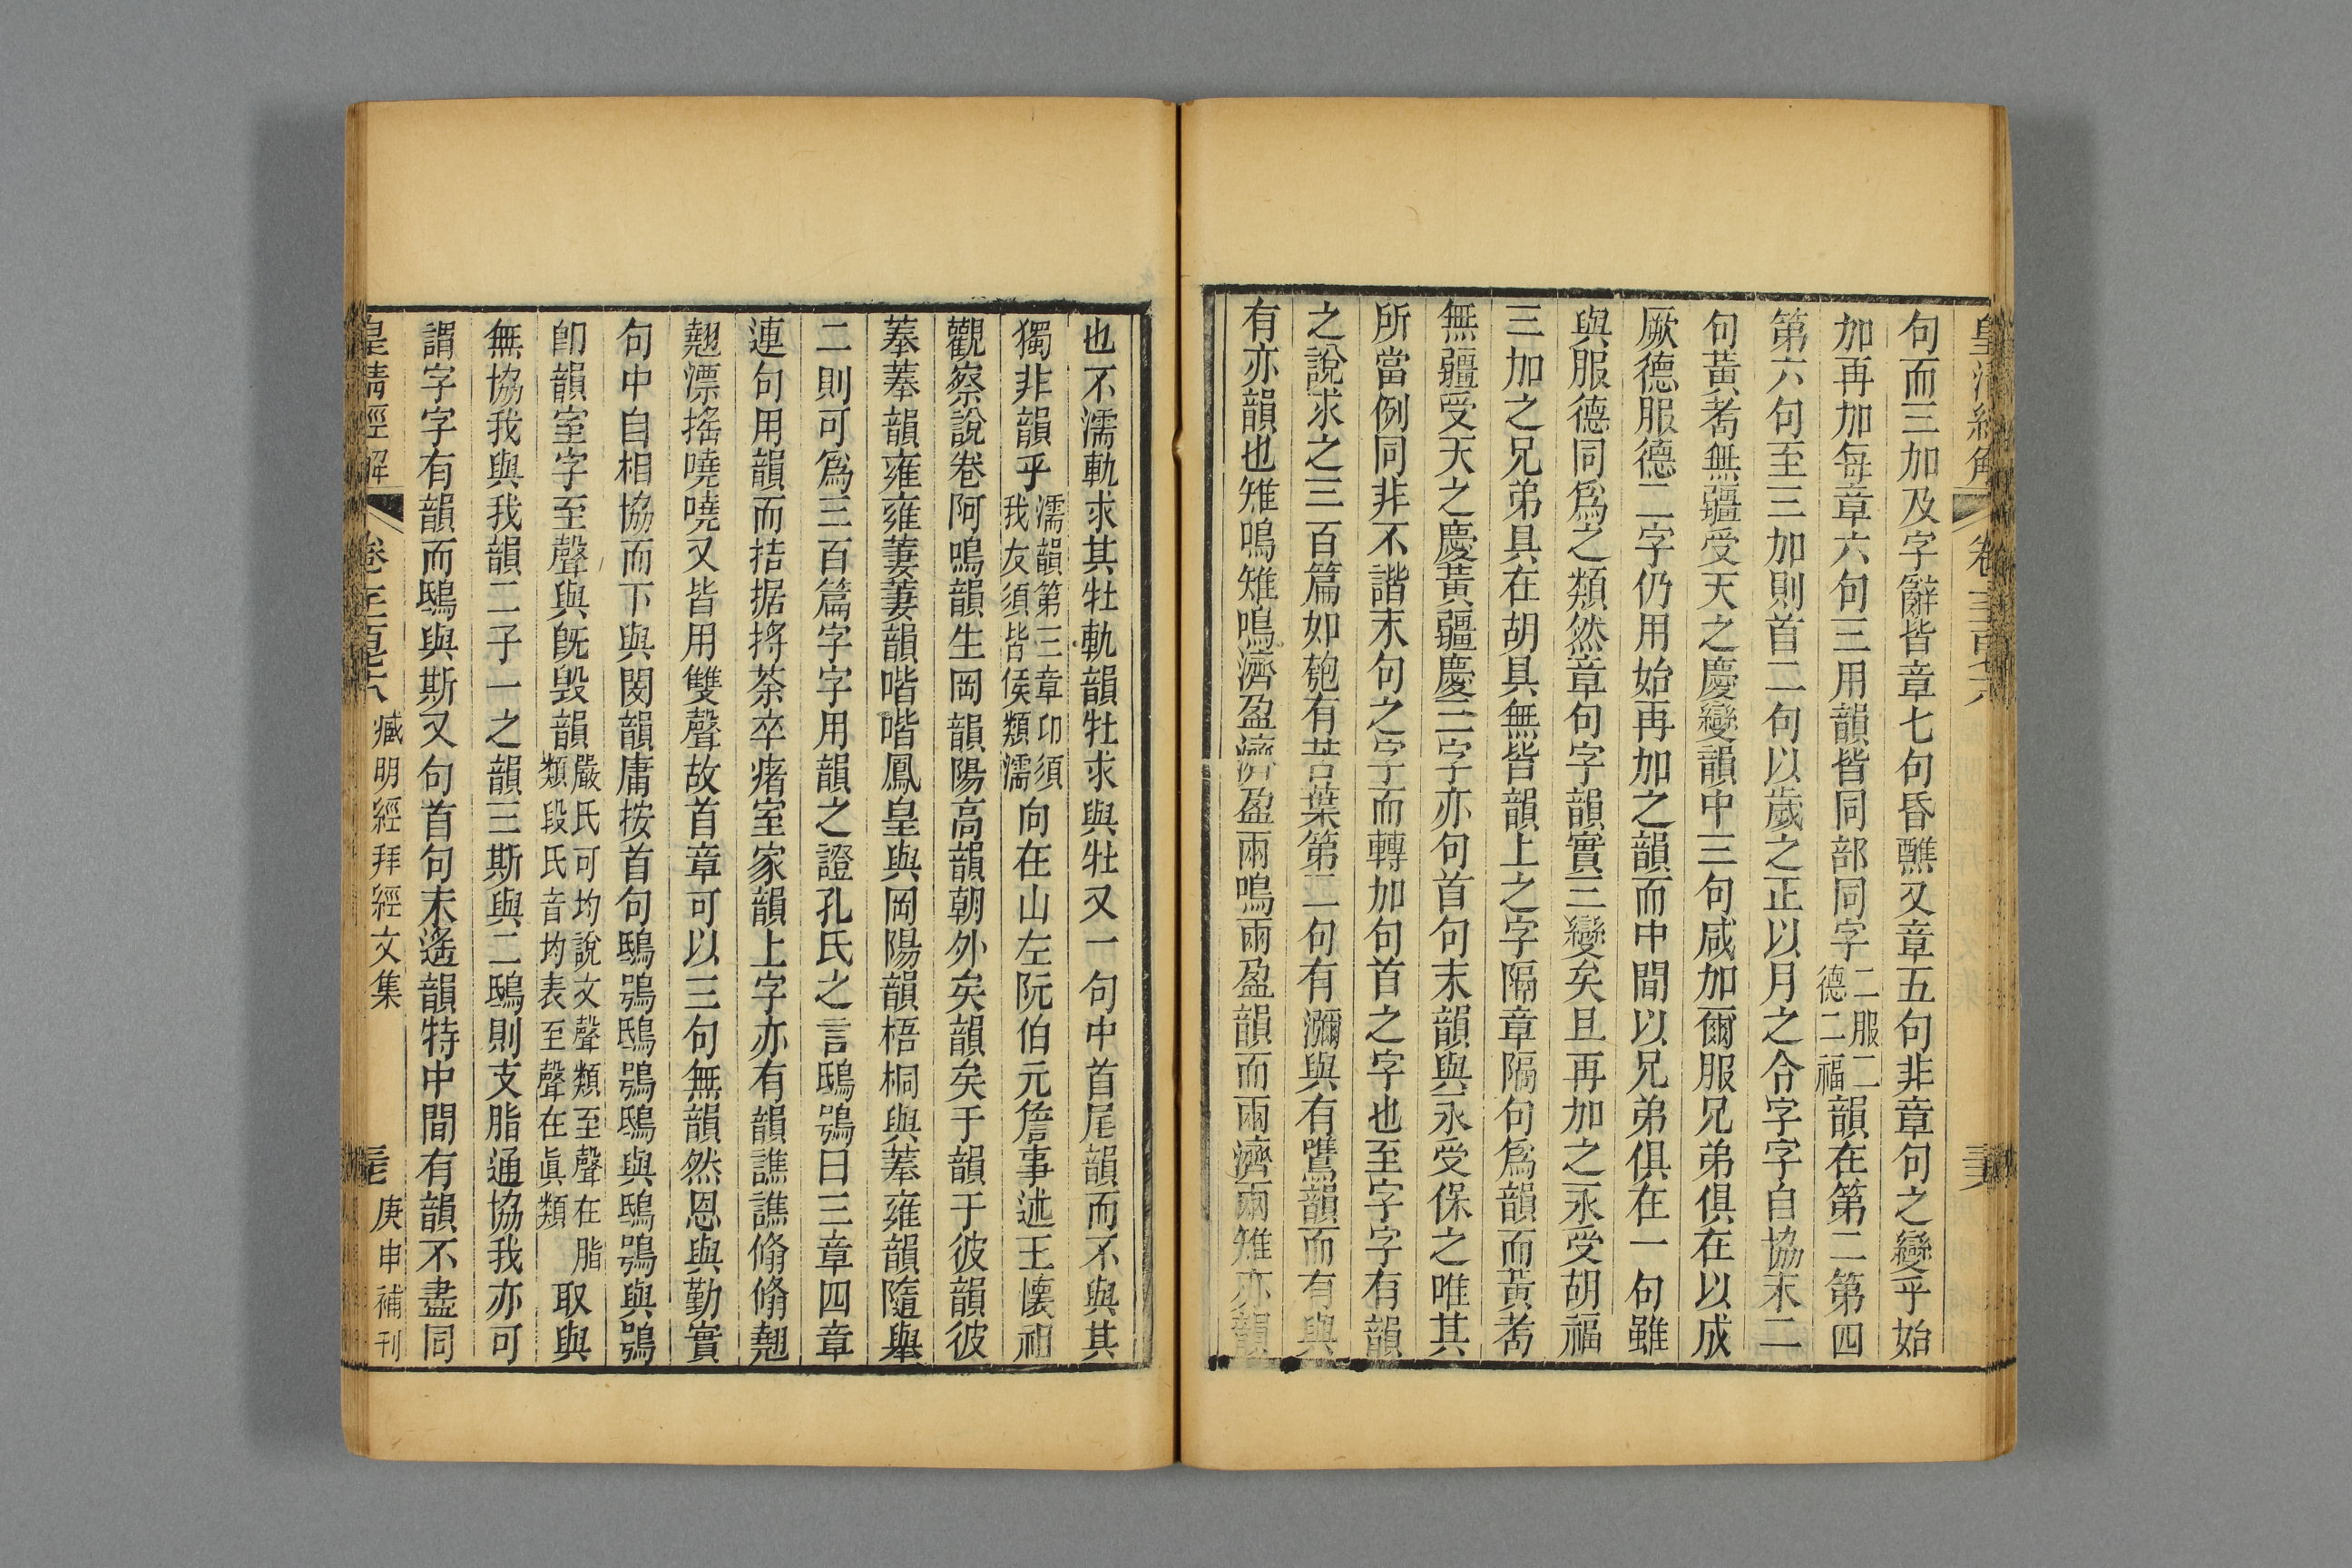 句而三加及字辭皆章七句昏醮又章五句非章句之變乎始
加再加每章六句三用韻皆同部同字二服二德二福二韻在第二第四
第六句至三加則首二句以歲之正以月之令字字自協末二
句黃耇無疆受天之慶變韻中三句咸加爾服兄弟俱在以成
厥德服德二字仍用始再加之韻而中間以兄弟俱在一句雖
與服德同爲之類然章句字韻實三變矣且再加之永受胡福
三加之兄弟具在胡具無皆韻上之字隔章隔句爲韻而黃耇
無疆受天之慶黃疆慶三字亦句首句末韻與永受保之唯其
所當例同非不諧末句之字而轉加句首之字也至字字有韻
之說求之三百篇如匏有苦葉第二句有瀰與有鷕韻而有與
有亦韻也雉鳴雉鳴濟盈濟盈雨鳴雨盈韻而雨濟雨雉亦韻
也不濡軌求其牡軌韻牡求與牡又一句中首尾韻而不與其
獨非韻乎濡韻第三章卬須我友須皆侯類濡向在山左阮伯元詹事述王懷祖
觀察說卷阿鳴韻生岡韻陽高韻朝外矣韻矣于韻于彼韻彼
菶菶韻雍雍萋萋韻喈喈鳳皇與岡陽韻梧桐與菶雍韻隨舉
二則可爲三百篇字字用韻之證孔氏之言鴟鴞曰三章四章
連句用韻而拮据捋荼卒瘏室家韻上字亦有韻譙譙翛翛翹
翹漂搖嘵嘵又皆用雙聲故首章可以三句無韻然恩與勤實
句中自相協而下與閔韻庸按首句鴟鴞鴟鴞鴟與鴟鴞與鴞
卽韻室字至聲與旣毀韻嚴氏可均說文聲類至聲在脂類段氏音均表至聲在眞類取與
無協我與我韻二子一之韻三斯與二鴟則支脂通協我亦可
謂字字有韻而鴟與斯又句首句末遙韻特中間有韻不盡同
皇清經解
臧明經拜經文集
庚申補刊